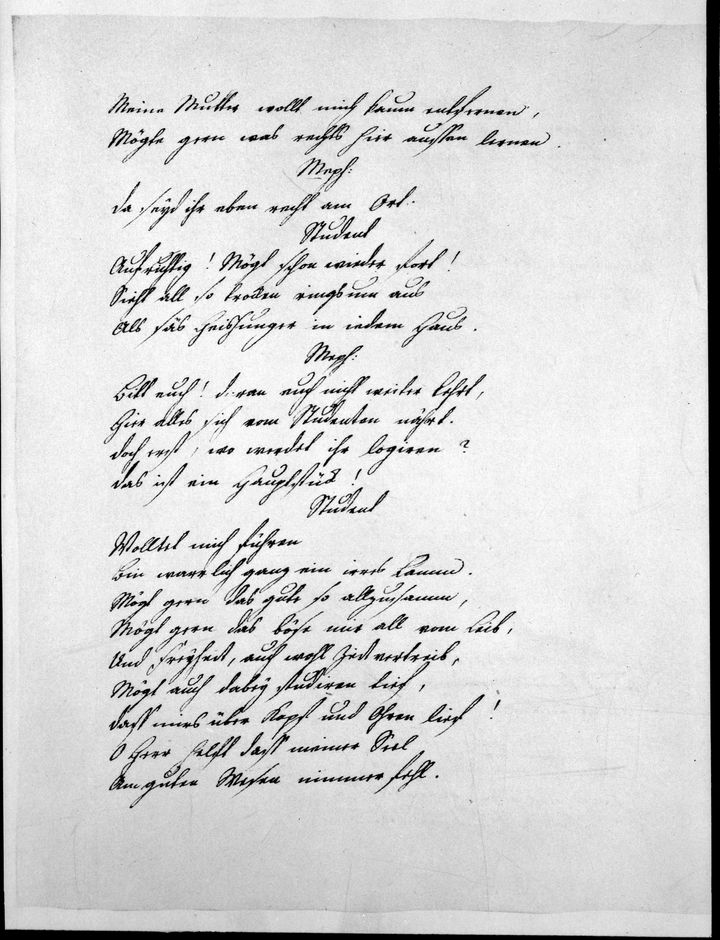 Meine Mutter wollt mich kaum entfernen,
Mögte gern was rechts hier aussen lernen.
Meph:
Da seyd ihr eben recht am Ort.
Student
Aufrichtig! Mögt schon wieder fort!
Sieht all so trocken ringsum aus
Als säs Heishunger in iedem Haus.
Meph:
Bitt euch! dran euch nicht weiter kehrt,
Hier alles sich vom Studenten nährt.
Doch erst, wo werdet ihr logiren?
Das ist ein Hauptstück!
Student
Wolltet mich führen
Bin warrlich ganz ein irres Lamm.
Mögt gern das gute so allzusamm,
Mögt gern das böse mir all vom Leib,
Und Freyheit, auch wohl Zeitvertreib,
Mögt auch dabey studiren tief,
Dass mirs über Kopf und Ohren lief!
O Herr helft dass meiner Seel
Am guten Wesen nimmer fehl.